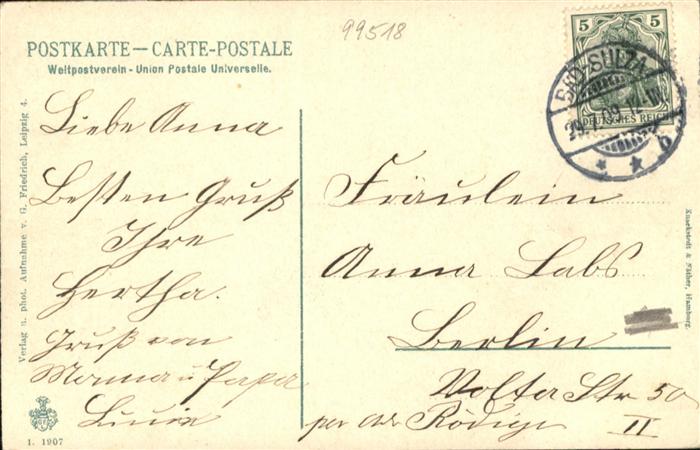 99518
POSTKARTE — CARTE-POSTALE
Weltpostverein - Union Postale Universelle.
5 5
DEUTSCHES REICH
BAD-SULZA
29. 7. 09. 12-1N.
* * b
Liebe Anna
Besten Gruß
Ihre
Hertha.
Gruß von
Mama u Papa
Verlag u. phot. Aufnahme v. G. Friedrich, Leipzig 4.
1. 1907
Fräulein
Anna Labs
Berlin
Volta Str 50
per Adr Rödiger II
Knackstedt & Näther, Hamburg.